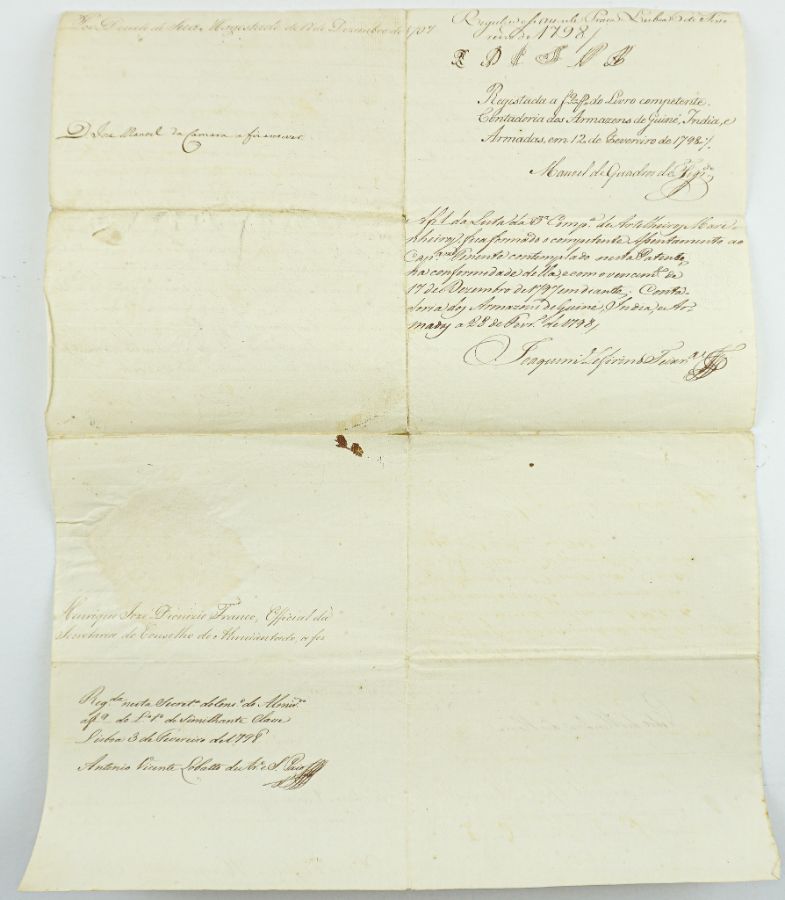 Por Decreto de Sua Magestade de 12 de Dezembro de 1797
D. Joze Manoel da Camara a fez escrever.
Henrique Joze Dionizio Franco, Official da
Secretaria do Conselho do Almirantado, a fez
Reg.da nesta Secret.ª do Cons.º do Almir.do
a f 9 do L.º 1.º de Semilhante Clave
Lisboa 3 de Fevereiro de 1798
Antonio Vicente Lobatto de S. Payo
Lisboa de
de 1798
Registada a f do Livro competente.
Contadoria dos Armazens de Guiné, India, e
Armadas, em 12 de Fevereiro de 1798.
Manoel de Quadros de
Af 1 da Lista da Comp.ª de Artelheiros Mari-
nheiros, fica formado o competente Assentamento ao
Cap.m Tenente contemplado nesta Patente,
na conformidade della, e com o vencim.to de
17 de Dezembro de 1797 em diante. Conta-
doria dos Armazens de Guiné, India, e Ar-
madas a 28 de Fevr.º de 1798
Joaquim